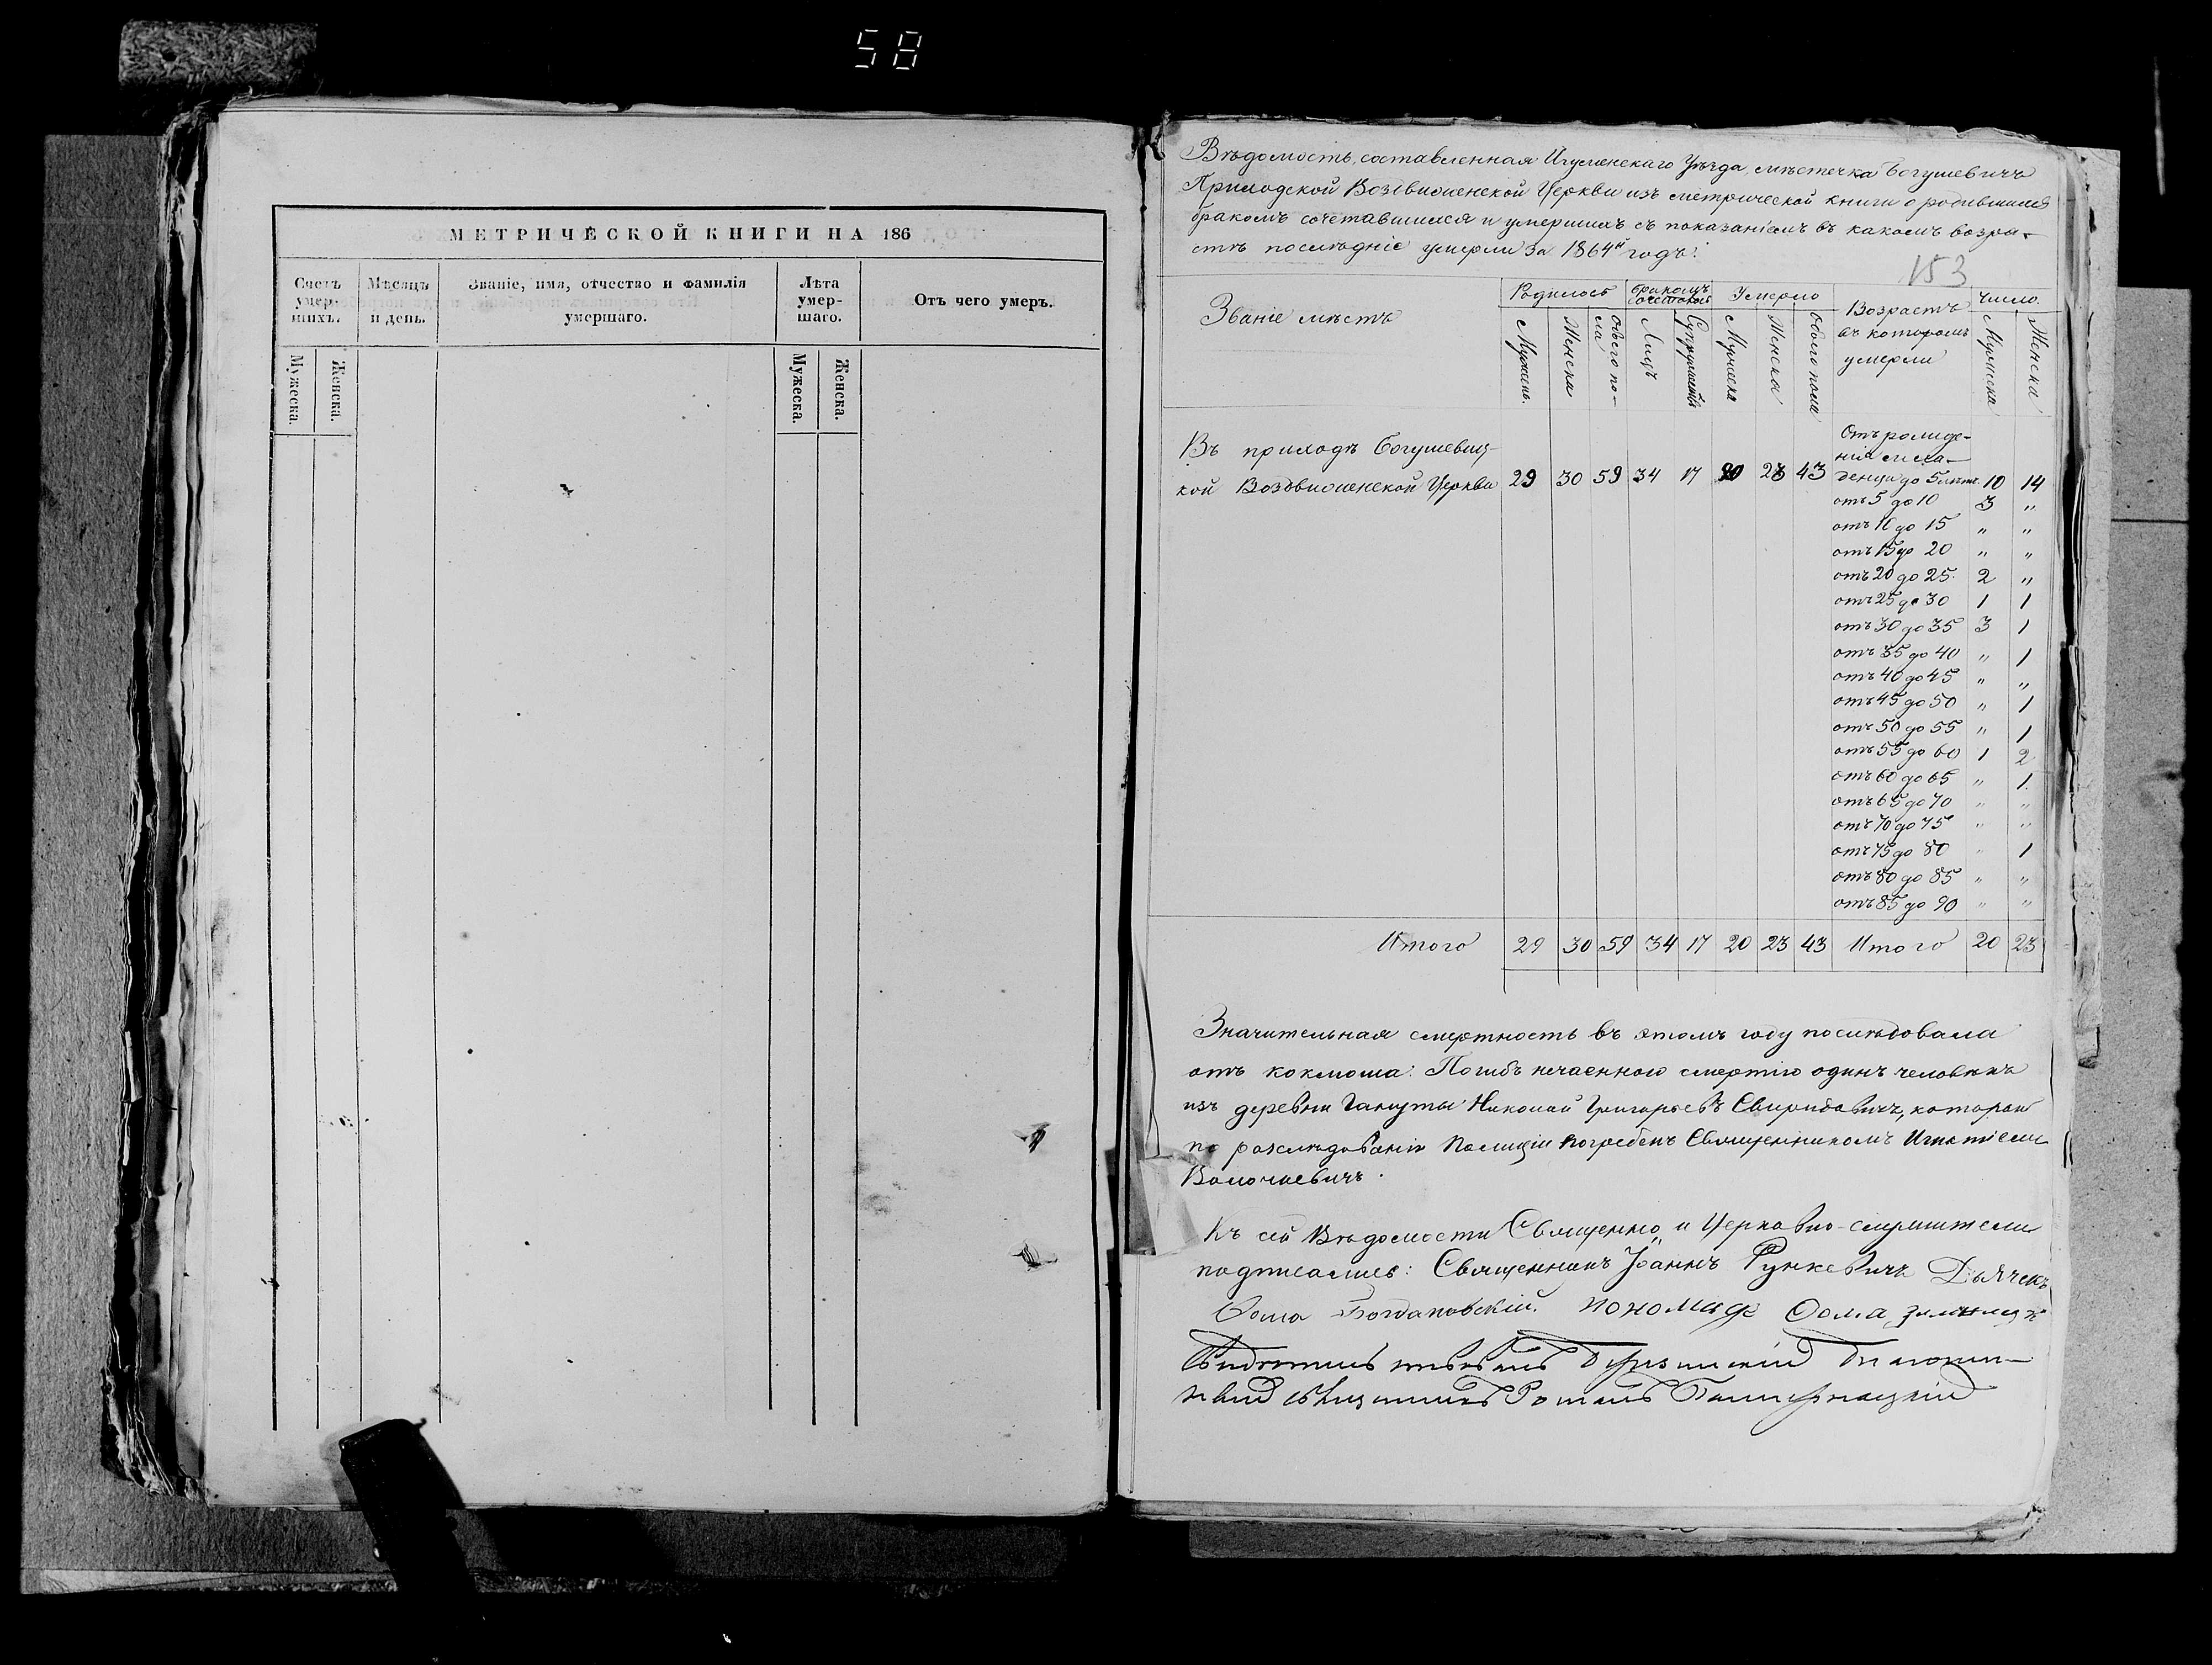 58
МЕТРИЧЕСКОЙ КНИГИ НА 186
Счетъ умер-шихъ.
Мѣсяцъ и день.
Званіе, имя, отчество и фамилія умершаго.
Лѣта умер-шаго.
Отъ чего умеръ.
Мужеска. Женска. Мужеска. Женска.
Вѣдомость, составленная Игуменскаго Уѣзда, мѣстечка Богушевичъ
Приходской Воздвиженской Церкви изъ метрической книги о родившихся
бракомъ сочетавшихся и умершихъ съ показаніемъ въ какомъ возра-
стѣ послѣдніе умерли за 1864й годъ.
153
Званіе мѣстъ
Родилось
бракомъ сочеталось
Умерло
Возрастъ въ которомъ умерли
Число.
Мужеск. Женска обоего по-ла Лицъ Супружествъ Мужеска Женска обоего пола Мужеска Женска
Въ приходѣ Богушевиц-
кой Воздвиженской Церкви 29 30 59 34 17 20 23 43
Отъ рожде-
нія мла-
денцы до 5 лѣтъ 10 14
отъ 5 до 10 3 "
отъ 10 до 15 " "
отъ 15 до 20 " "
отъ 20 до 25 2 "
отъ 25 до 30 1 1
отъ 30 до 35 3 1
отъ 35 до 40 " 1
отъ 40 до 45 " "
отъ 45 до 50 " 1
отъ 50 до 55 " 1
отъ 55 до 60 1 2
отъ 60 до 65 " 1
отъ 65 до 70 " "
отъ 70 до 75 " "
отъ 75 до 80 " 1
отъ 80 до 85 " "
отъ 85 до 90 " "
Итого 29 30 59 34 17 20 23 43 Итого 20 23
Значительная смертность въ этомъ году послѣдовала
отъ коклюша. Погибъ нечаенною смертію одинъ человѣкъ
изъ деревни Гануты Николай Григорьевъ Свиридовичъ, который
по разслѣдованіи Полиціи погребенъ Священникомъ Игнатіемъ
Волочкевичъ.
Къ сей Вѣдомости Священно и Церковно-служители
подписались: Священникъ Іоаннъ Рункевичъ Дьячекъ
Ѳома Богдановскій. пономарь Ѳома
Романъ